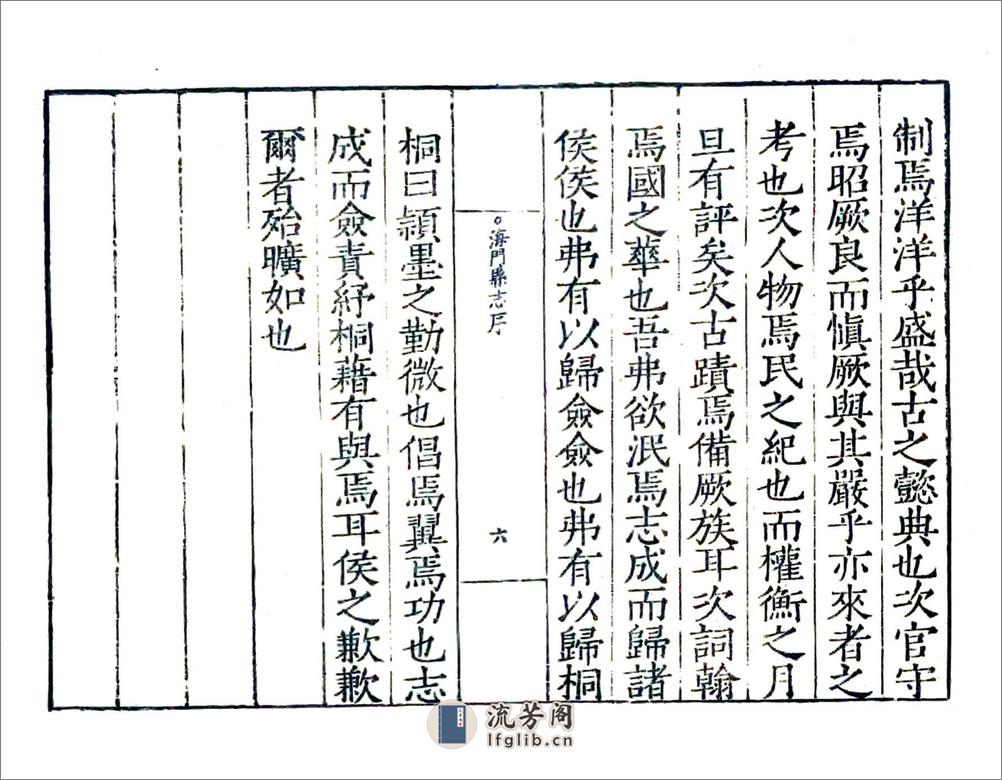 制焉洋洋乎盛哉古之懿典也次官守
焉昭厥良而慎厥與其嚴乎亦來者之
考也次人物焉民之紀也而權衡之月
旦有評矣次古蹟焉備厥族耳次詞翰
焉國之華也吾弗欲泯焉志成而歸諸
侯侯也弗有以歸僉僉也弗有以歸桐
海門縣志序
六
桐曰穎墨之勤微也倡焉翼焉功也志
成而僉責紓桐藉有與焉耳侯之歉歉
爾者殆曠如也
流芳阁
lfglib.cn